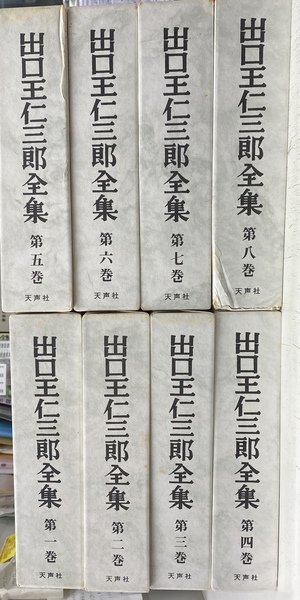 出口王仁三郎全集 第五巻 天声社
出口王仁三郎全集 第六巻 天声社
出口王仁三郎全集 第七巻 天声社
出口王仁三郎全集 第八巻 天声社
出口王仁三郎全集 第一巻 天声社
出口王仁三郎全集 第二巻 天声社
出口王仁三郎全集 第三巻 天声社
出口王仁三郎全集 第四巻 天声社